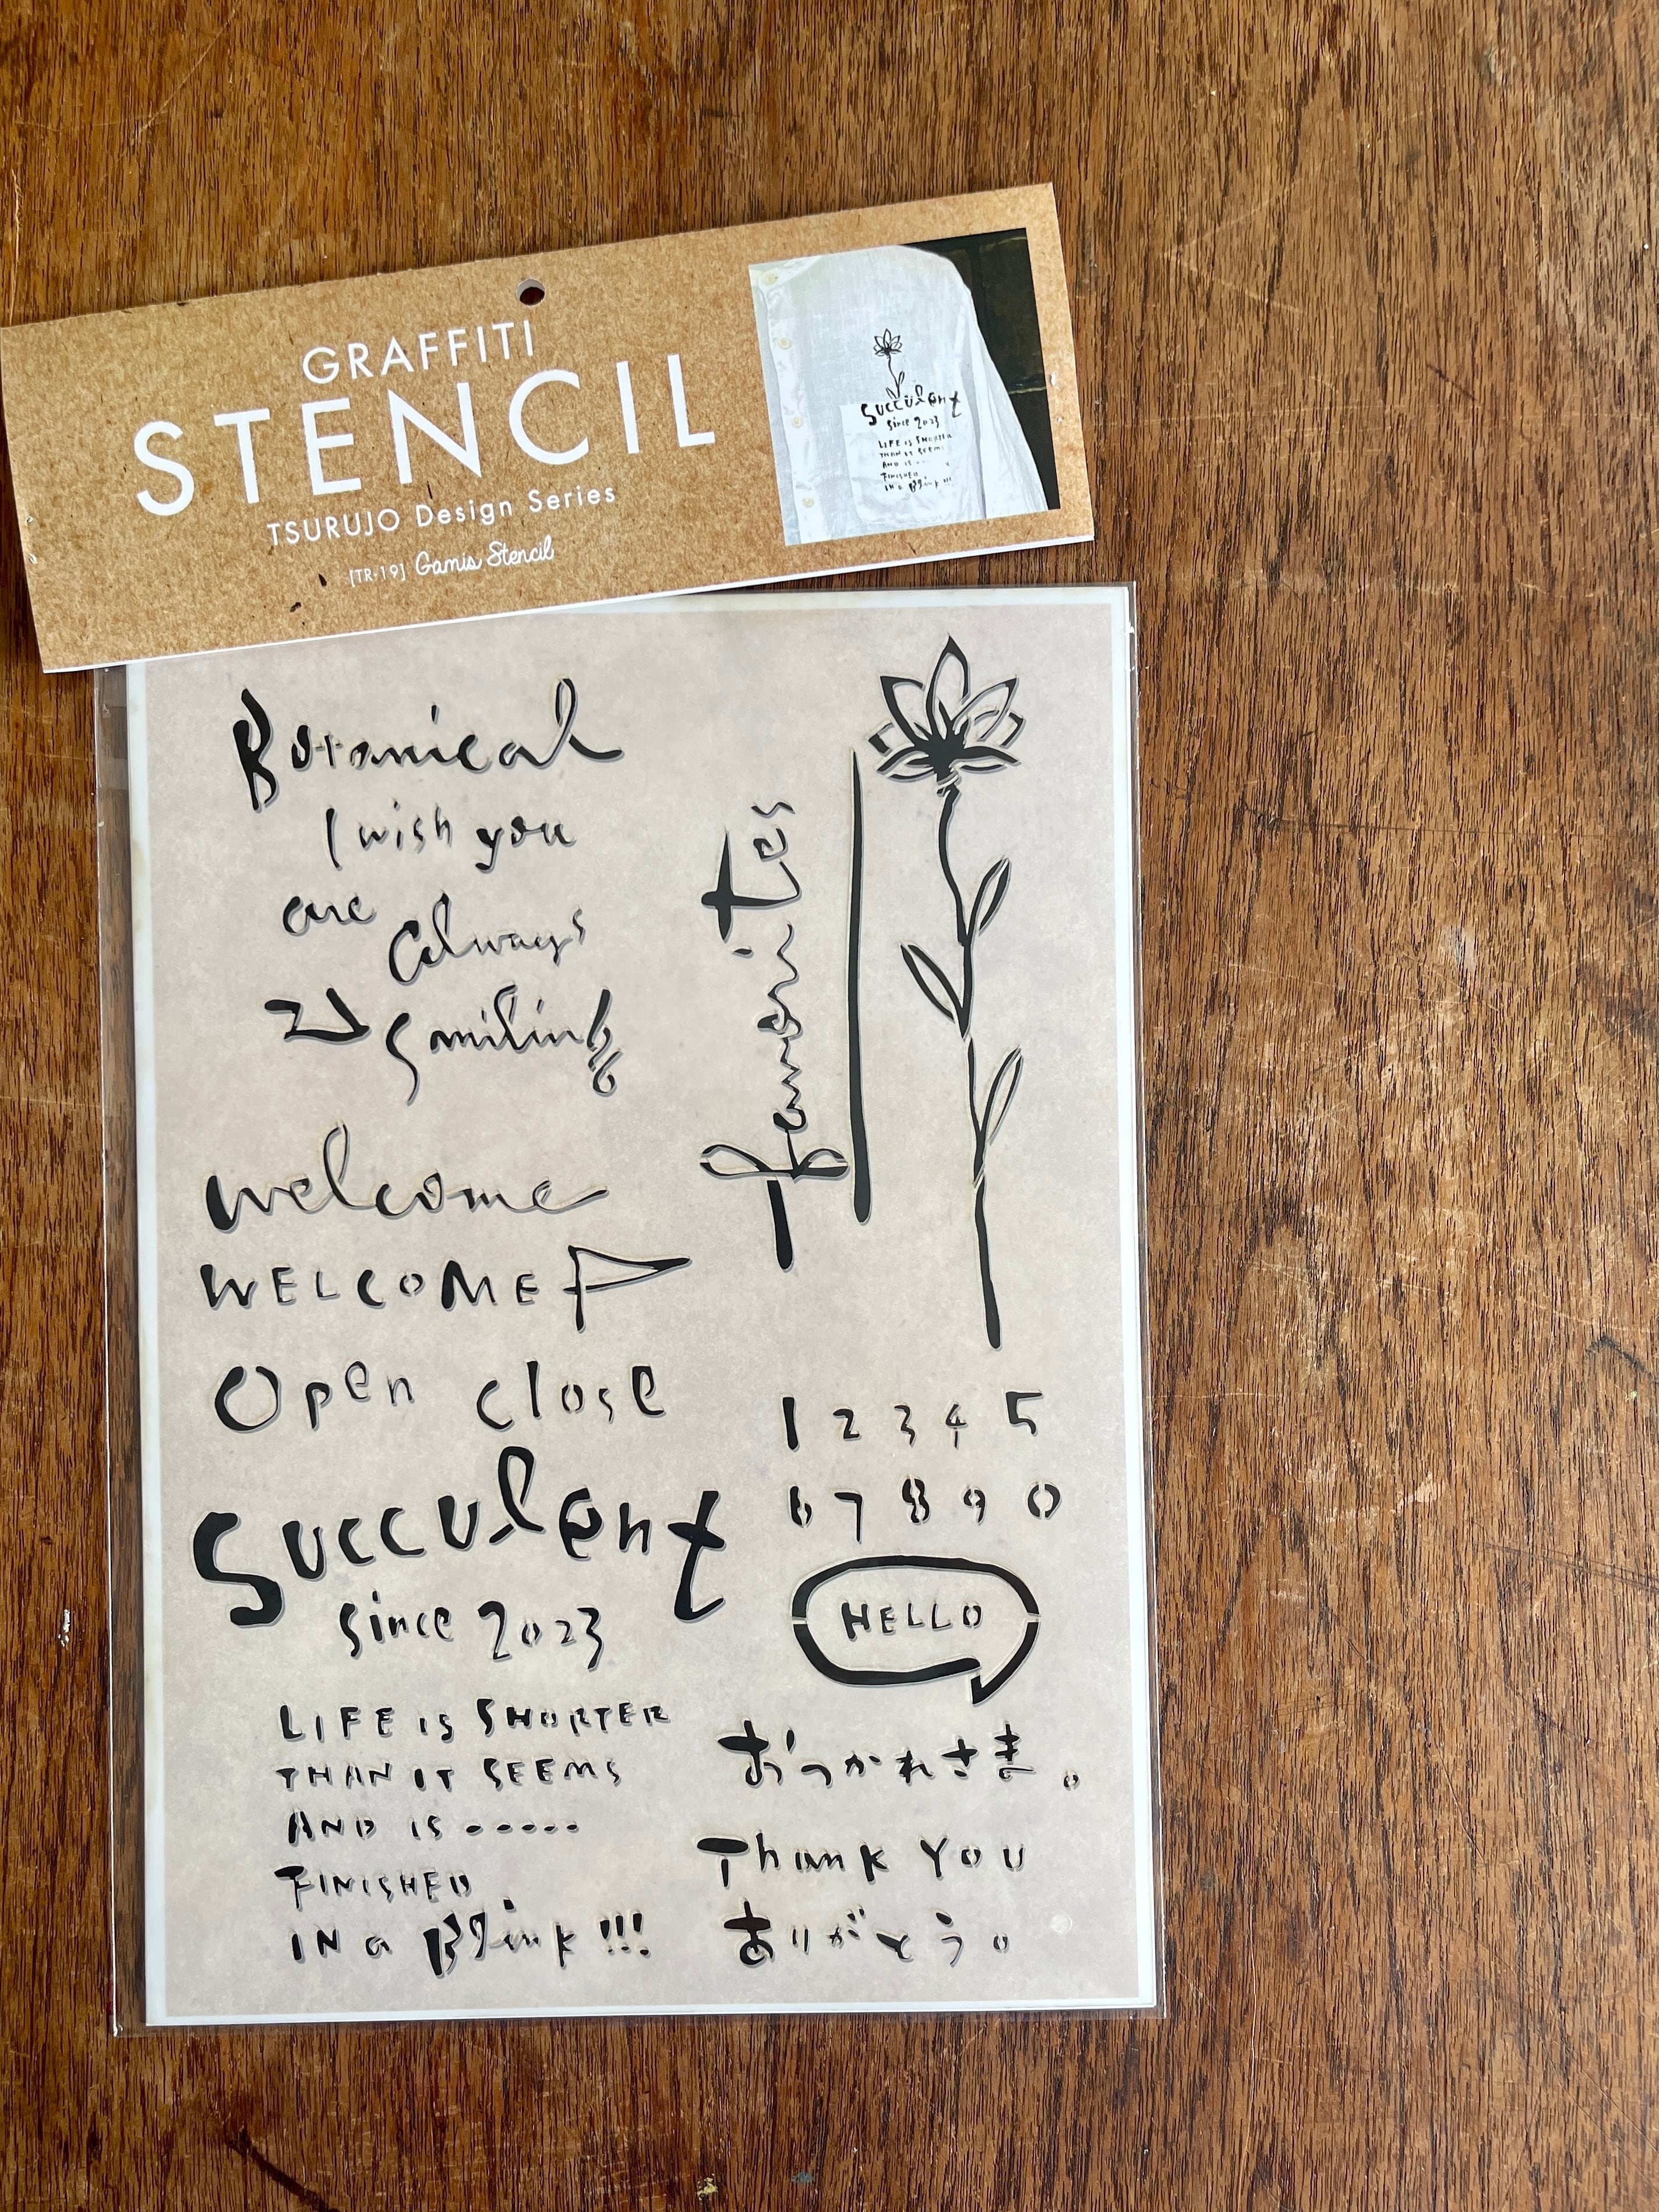 GRAFFITI
STENCIL
TSURUJO Design Series
[TR-19] Gamis Stencil
Succulent
since 2023
LIFE is SHORTER
THAN IT SEEMS
AND IS --
FINISHED
IN a Blink !!!
Botanical
I wish you
are always
smiling
favorites
welcome
WELCOME
Open close
Succulent
since 2023
LIFE IS SHORTER
THAN IT SEEMS
AND IS -----
FINISHED
IN a Blink !!!
1 2 3 4 5
6 7 8 9 0
HELLO
おつかれさま。
Thank You
ありがとう。